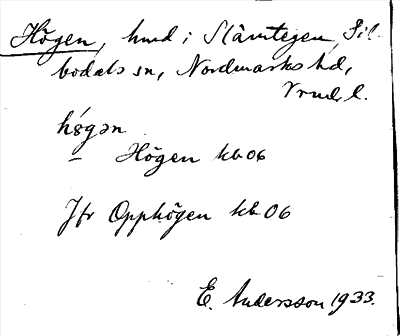 Högen, hmd i Slämtegen, Sil-
bodals sn, Nordmarks hd,
Vrml.
hǿgən
– Högen kb 06
Jfr Opphögen kb 06
E. Andersson 1933.